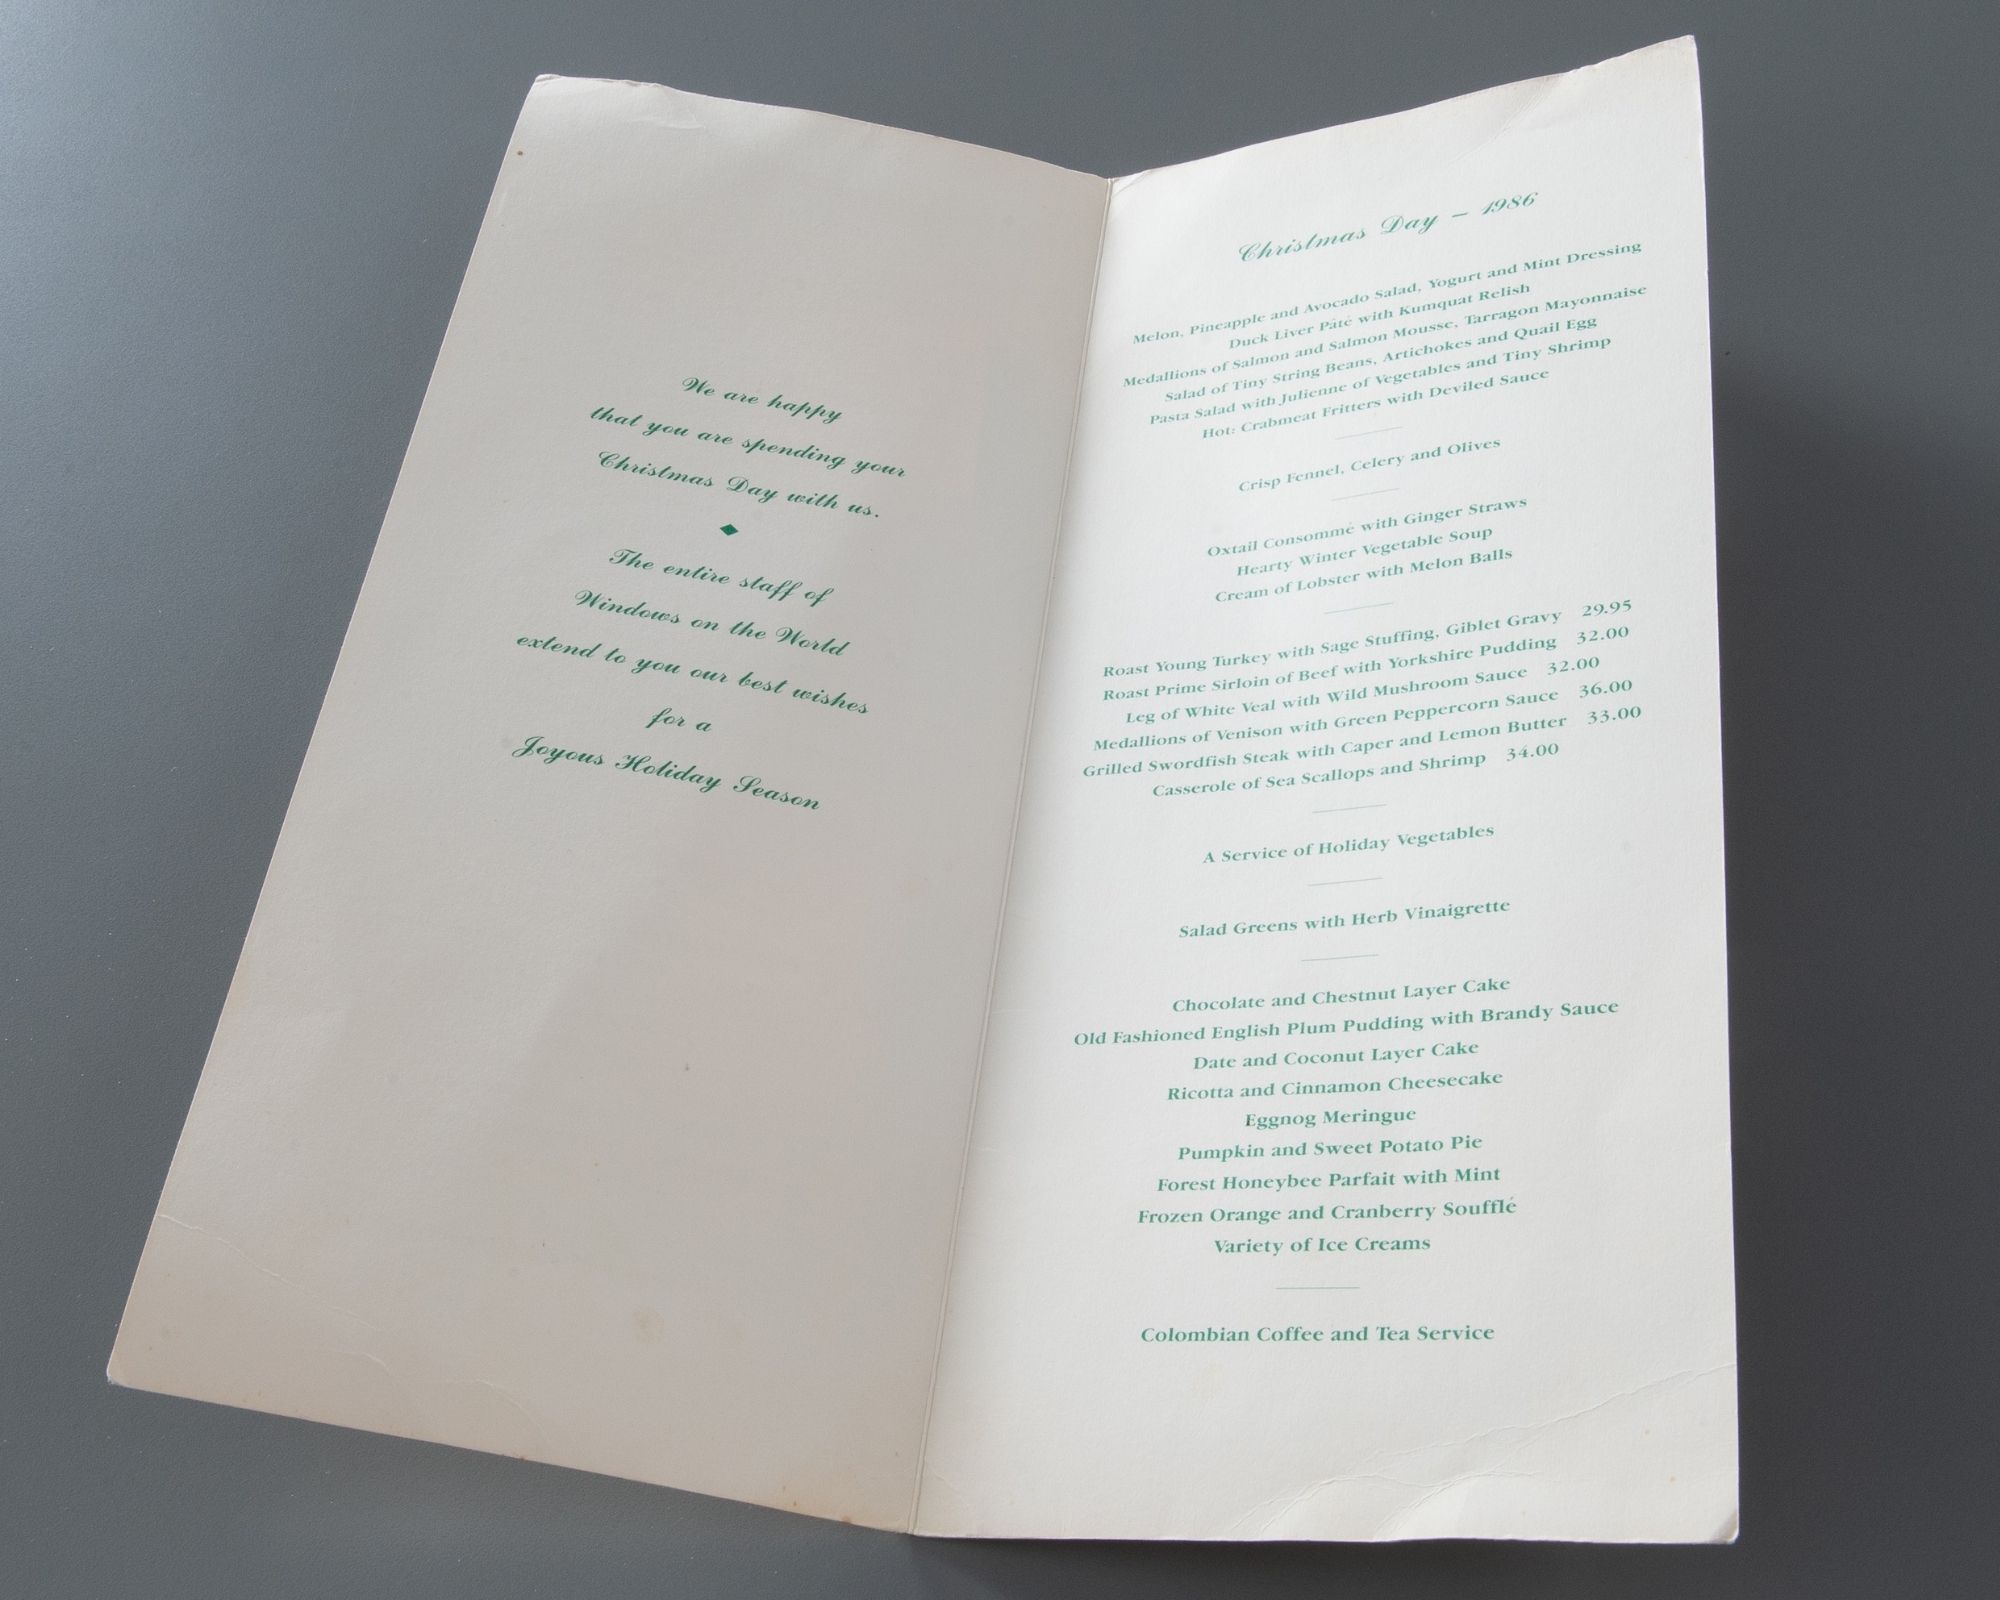 We are happy
that you are spending your
Christmas Day with us.
The entire staff of
Windows on the World
extend to you our best wishes
for a
Joyous Holiday Season
Christmas Day – 1986
Melon, Pineapple and Avocado Salad, Yogurt and Mint Dressing
Duck Liver Pâté with Kumquat Relish
Medallions of Salmon and Salmon Mousse, Tarragon Mayonnaise
Salad of Tiny String Beans, Artichokes and Quail Egg
Pasta Salad with Julienne of Vegetables and Tiny Shrimp
Hot: Crabmeat Fritters with Deviled Sauce
Crisp Fennel, Celery and Olives
Oxtail Consommé with Ginger Straws
Hearty Winter Vegetable Soup
Cream of Lobster with Melon Balls
Roast Young Turkey with Sage Stuffing, Giblet Gravy 29.95
Roast Prime Sirloin of Beef with Yorkshire Pudding 32.00
Leg of White Veal with Wild Mushroom Sauce 32.00
Medallions of Venison with Green Peppercorn Sauce 36.00
Grilled Swordfish Steak with Caper and Lemon Butter 33.00
Casserole of Sea Scallops and Shrimp 34.00
A Service of Holiday Vegetables
Salad Greens with Herb Vinaigrette
Chocolate and Chestnut Layer Cake
Old Fashioned English Plum Pudding with Brandy Sauce
Date and Coconut Layer Cake
Ricotta and Cinnamon Cheesecake
Eggnog Meringue
Pumpkin and Sweet Potato Pie
Forest Honeybee Parfait with Mint
Frozen Orange and Cranberry Soufflé
Variety of Ice Creams
Colombian Coffee and Tea Service